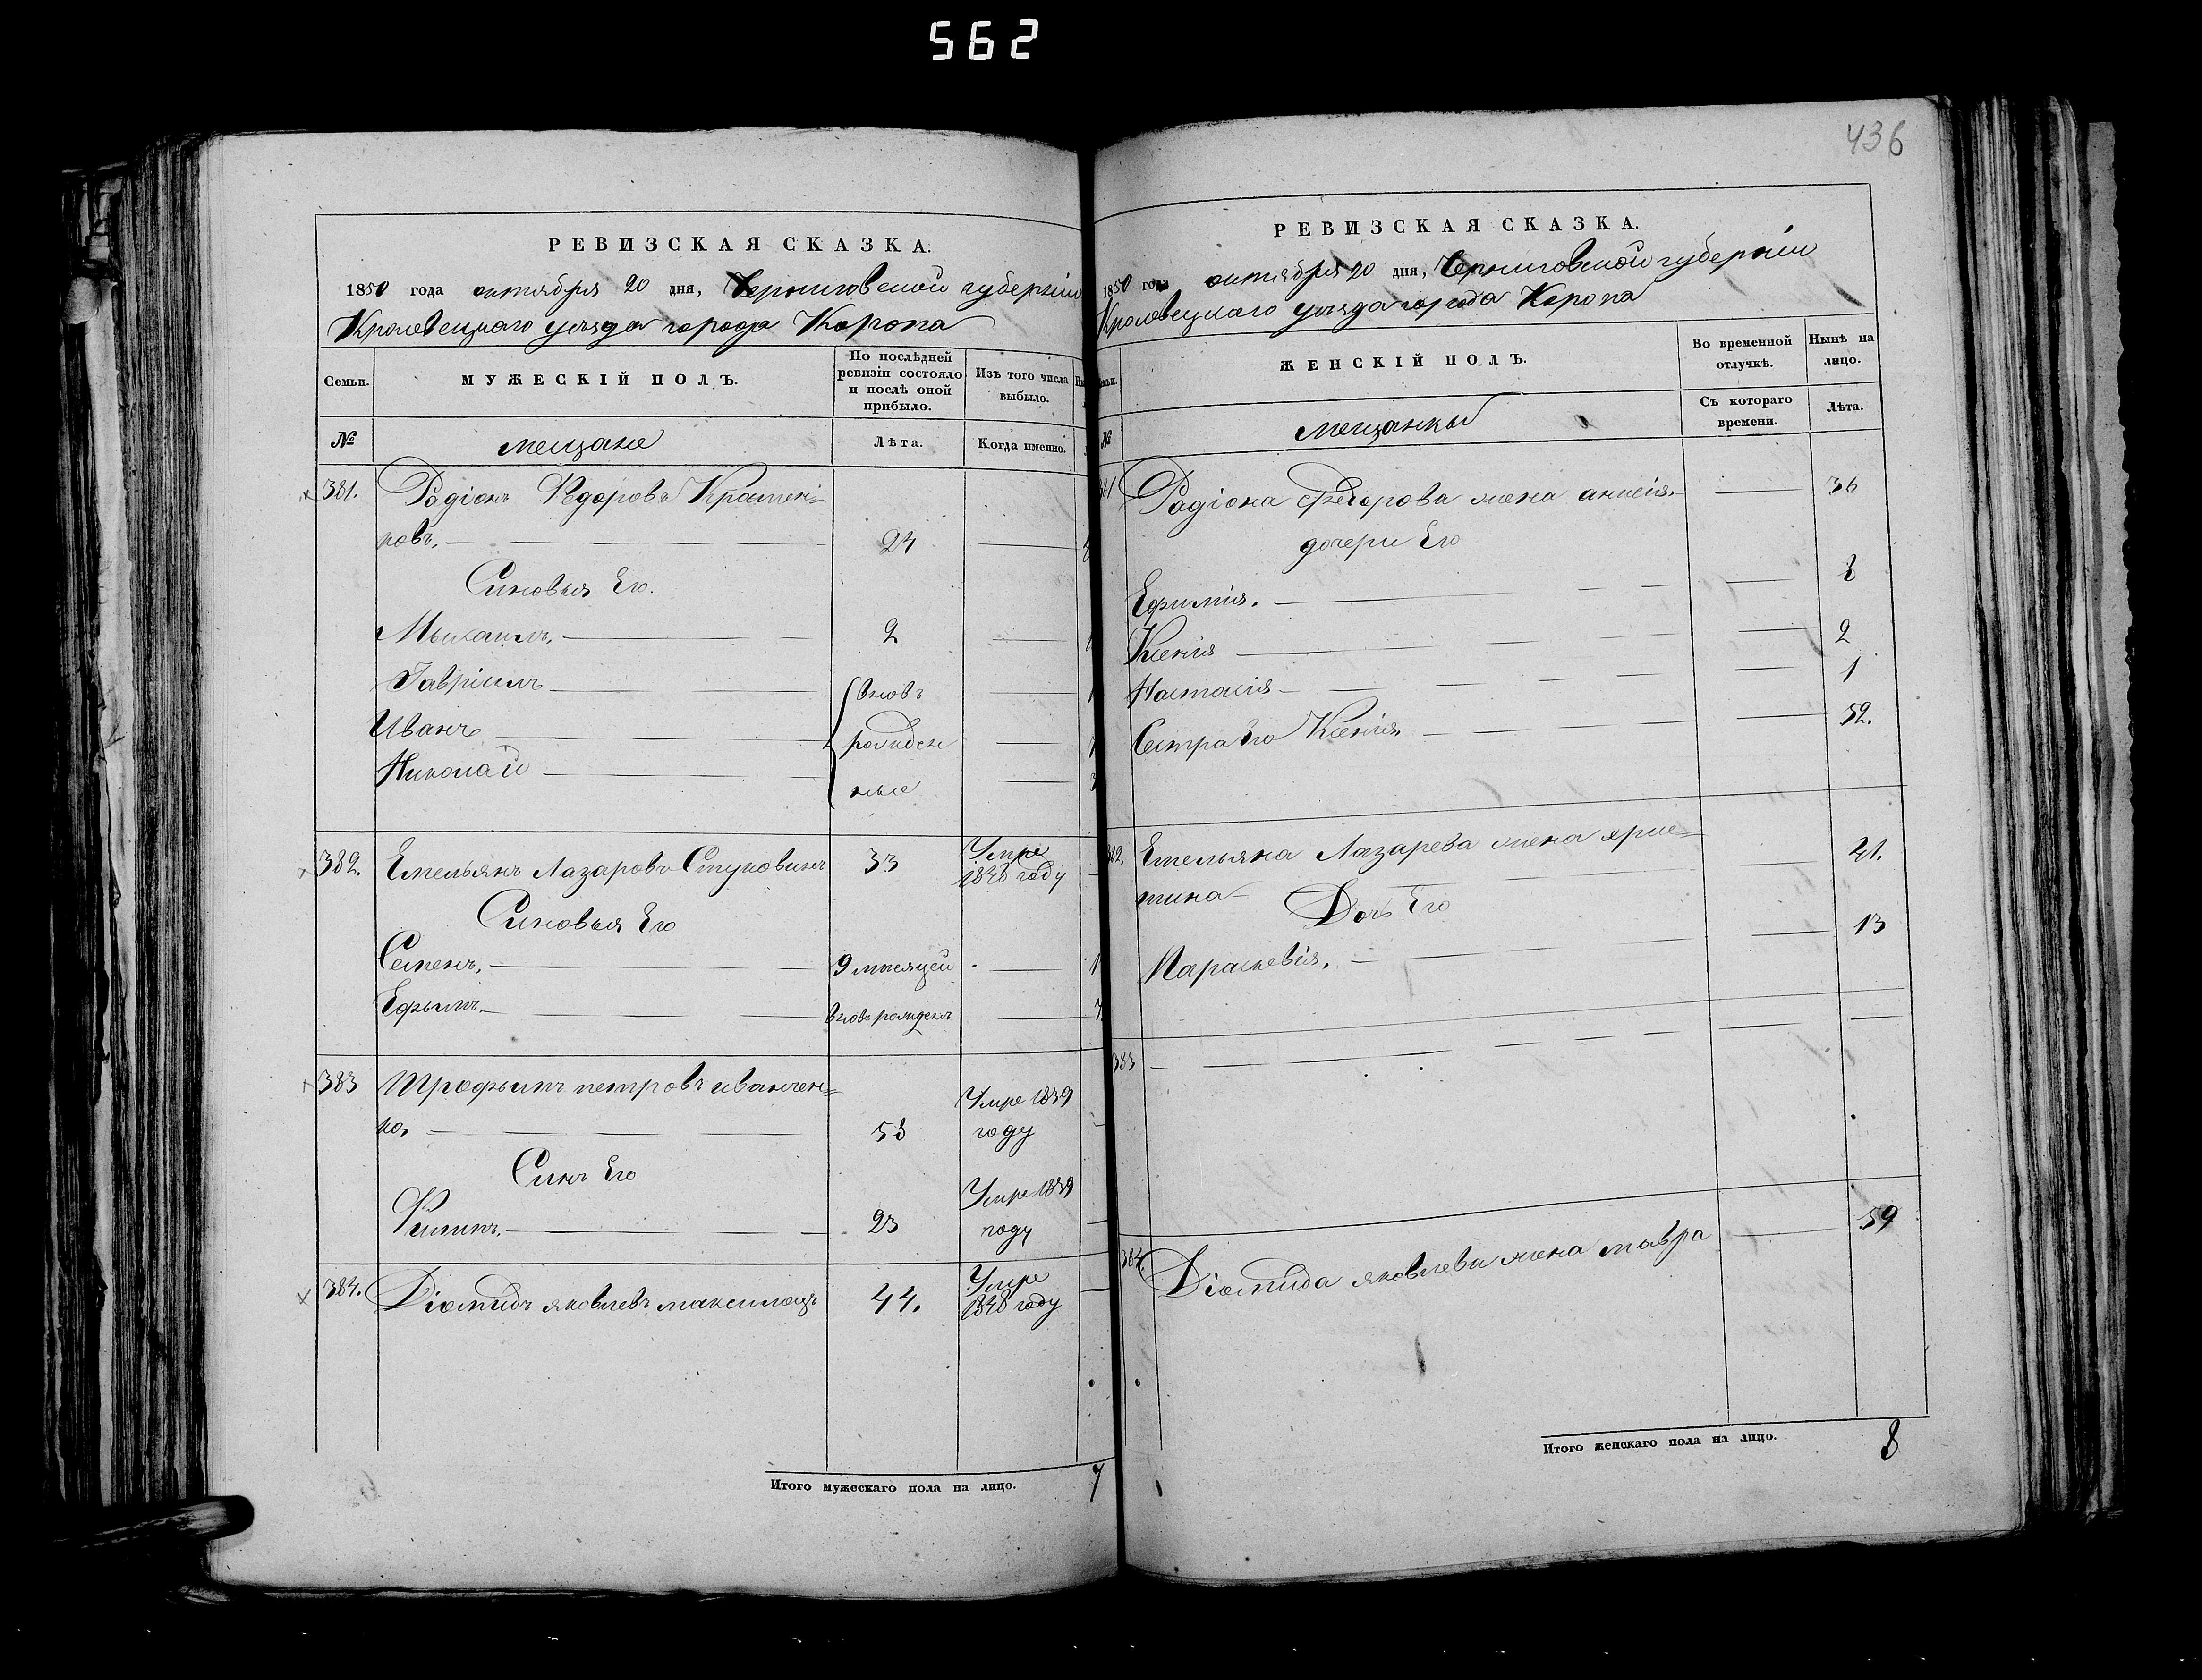 562
436
РЕВИЗСКАЯ СКАЗКА.
1850 года октября 20 дня, Черниговской губерніи
Кролевецкаго уезда города Коропа
Семьи.
МУЖЕСКІЙ ПОЛЪ.
По послѣдней ревизіи состояло и послѣ оной прибыло.
Изъ того числа выбыло.
№
мещане
Лѣта.
Когда именно.
381. Радіонъ Федоровъ
ровъ. 24
Синовья Его.
Михаилъ. 2
Гавріилъ вновь
Иванъ рожден
Николай ные
382. Емельянъ Лазаровъ Ступовинъ 33 Умре 1848 году
Синовья Его
Семенъ. 9 месяцей
Ефымъ. вновь рожденъ
383 Трофымъ петровъ иванчен=
ко. 58 Умре 1839 году
Синъ Его
Филипъ. 23 Умре 1839 году
384. Діомидъ яковлевъ 44. Умре 1848 году
Итого мужескаго пола на лицо. 7
РЕВИЗСКАЯ СКАЗКА.
1850 года октября 20 дня, Черниговской губерніи
Кролевецкаго уезда города Коропа
ЖЕНСКІЙ ПОЛЪ.
Во временной отлучкѣ.
Нынѣ на лицо.
№
мещанкы
Съ котораго времени.
Лѣта.
381 Радіона Федорова жена анисія. 36
дочери Его
Ефимія. 8
Ксенія 2
Настасія 1
Сестра Его Ксенія 52.
382. Емельяна Лазарева жена хрис=
тина 41.
Дочь Его
Параскевія. 13
383
384. Діомида яковлева жена мавра 59
Итого женскаго пола на лицо. 8